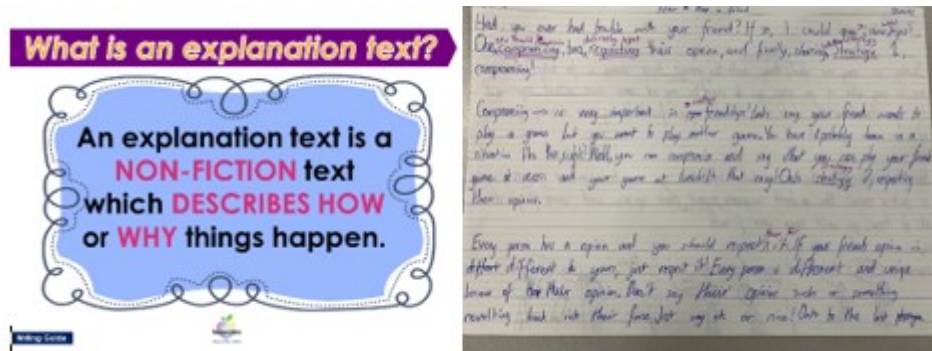 What is an explanation text?
An explanation text is a
NON-FICTION text
which DESCRIBES HOW
or WHY things happen.
Writing Guide
Had you ever had trouble with your friend? If so, I could
One, compromising, two, respecting their opinion, and finally, sharing. 1,
compromising!
Compromising is very important in friendships! Lets say your friend wants to
play a game but you want to play another game. You have probably been in a
situation like this, right? Well, you can compromise and say that you can play your friend
game at and your game at that easy! Onto strategy 2, respecting
their opinion.
Every person has a opinion and you should respect it. If your friends opinion is
different to yours, just respect it! Every person is different and unique
because of their opinion. Don't say their opinion sucks or something
revolting back into their face, just say ok or nice! Onto the last